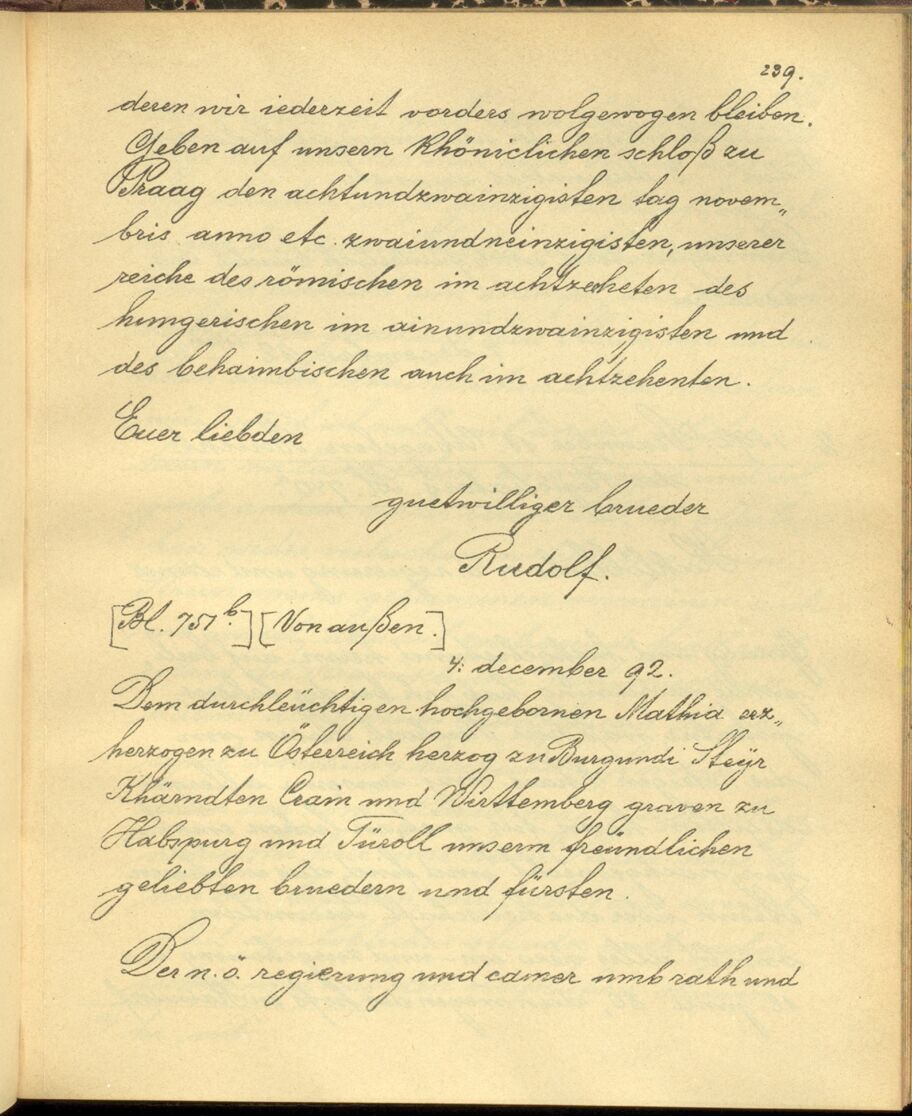 239.
deren wir iederzeit vorders wolgewogen bleiben.
Geben auf unsern khöniclichen schloß zu
Praag den achtundzwainzigisten tag novem„
bris anno etc. zwaiundneinzigisten, unserer
reiche des römischen im achtzeheten des
hungerischen im ainundzwainzigisten und
des behaimbischen auch im achtzehenten.
Euer liebden
guetwilliger brueder
Rudolf.
[Bl. 757b.] [Von außen.]
4: december 92.
Dem durchleüchtigen hochgebornen Mathia erz„
herzogen zu Österreich herzog zu Burgundi Steÿr
Khärndten Crain und Wirttemberg graven zu
Habspurg und Türoll unserm freündlichen
geliebten bruedern und fürsten.
Der n. ö. regierung und camer umb rath und